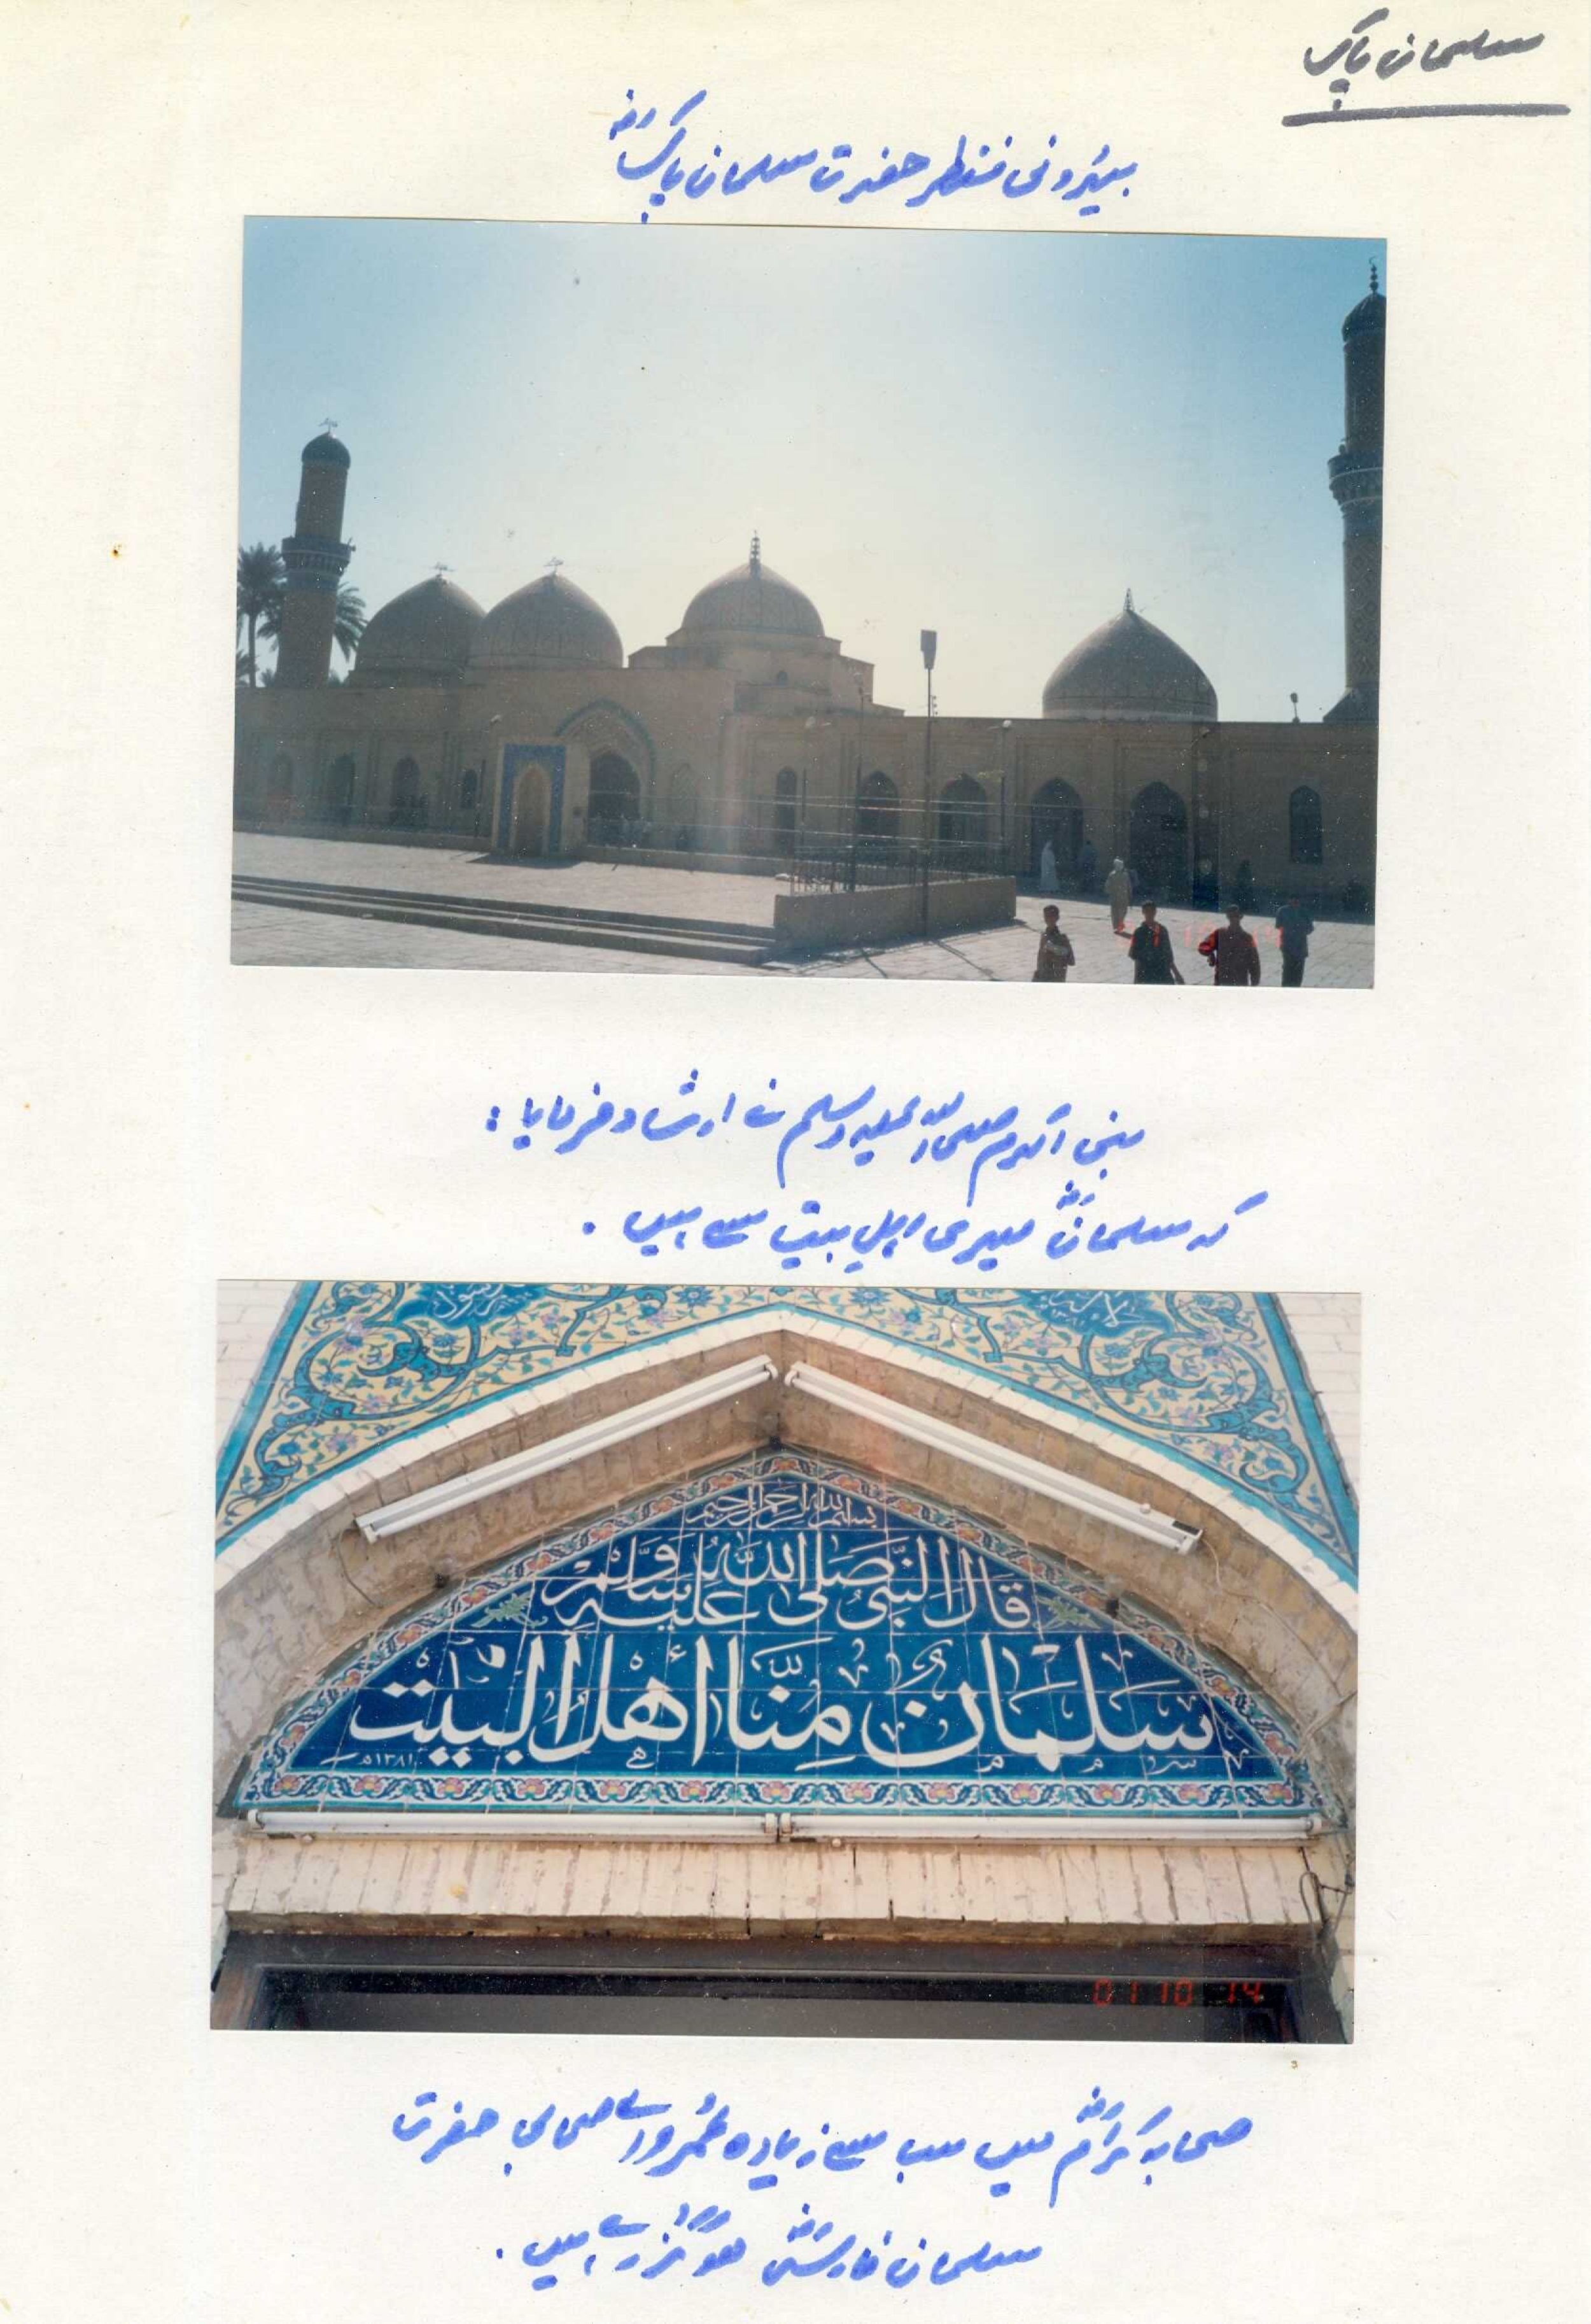 سلمان پاک
بیرونی منظر حضرت سلمان پاکؓ
نبی اکرم صلی اللہ علیہ وسلم نے ارشاد فرمایا :
کہ سلمانؓ میری اہلِ بیت سے ہیں .
بسم الله الرحمن الرحيم
قَالَ النَّبِيُّ صَلَّى اللَّهُ عَلَيْهِ وَسَلَّمَ
سَلْمَانُ مِنَّا أَهْلَ الْبَيْتِ
١٣٨١هـ
01 10 14
صحابہ کرامؓ میں سب سے زیادہ عُمر والے صحابی حضرت
سلمان فارسیؓ ہو گُزرے ہیں .